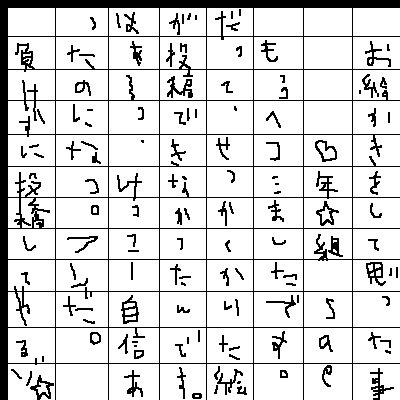 お絵かきをして思った事
♡年☆組
もうヘコミましたです。
だって、せっかくかいた絵
が投稿できなかったんです。
はぁうっ、けっこー自信あ
ったのになっ。マジだ。
負けずに投稿してやるゾ☆